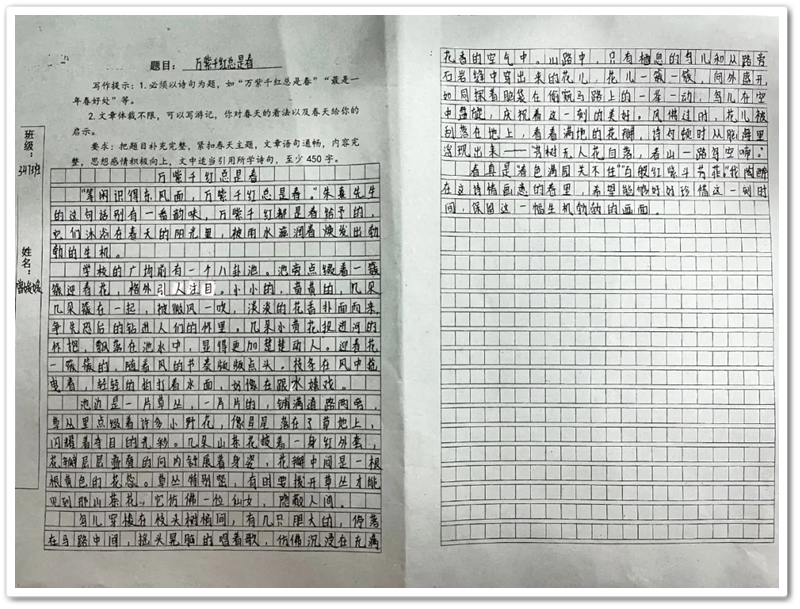 题目：万紫千红总是春
写作提示：1.必须以诗句为题，如“万紫千红总是春”“最是一
年春好处”等。
2.文章体裁不限，可以写游记，你对春天的看法以及春天给你的
启示。
要求：把题目补充完整，紧扣春天主题，文章语句通畅，内容完
整，思想感情积极向上，文中适当引用所学诗句，至少450字。
班级：
姓名：
万紫千红总是春
“等闲识得东风面，万紫千红总是春。”朱熹先生
的这句话别有一番韵味，万紫千红都是春给予的，
它们沐浴在春天的阳光里，被雨水滋润着焕发出勃
勃的生机。
学校的广场前有一个八卦池。池旁点缀着一簇
簇迎春花，格外引人注目，小小的，黄黄的，几朵
几朵簇在一起，被微风一吹，淡淡的花香扑面而来，
争先恐后的钻进人们的怀里。几朵小黄花投进河的
怀抱，飘落在池水中，显得更加楚楚动人。迎春花
一簇簇的，随着风的节奏频频点头。枝条在风中摇
曳着，轻轻的拍打着水面，仿佛在跟水嬉戏。
池边是一片草丛，一片片的，铺满道路两旁，
草丛里点缀着许多小野花，像星星落在了草地上，
闪耀着夺目的光彩。几朵山茶花披着一身红外套，
花瓣层层叠叠的向内舒展着身姿，花瓣中间是一根
根黄色的花蕊。草丛特别密，有时要拨开草丛才能
见到那山茶花，它仿佛一位仙女，隐蔽人间。
鸟儿穿梭在枝头树梢间，有几只胆大的，停落
在马路中间，摇头晃脑的唱着歌，仿佛沉浸在充满
花香的空气中。山路中，只有栖息的鸟儿和从路旁
石岩缝中穿出来的花儿，花儿一簇一簇，向外盛开，
如同探着脑袋在偷窥马路上的一举一动，鸟儿在空
中盘旋，庆祝着这一刻的美好。风佛过时，花儿被
刮落在地上，看着满地的花瓣，诗句顿时从脑海里
浮现出来——“芳树无人花自落，春山一路鸟空啼。”
看真是“春色满园关不住”“百般红紫斗芳菲”我陶醉
在这诗情画意的春里，希望能够好好珍惜这一刻时
间，保留这一幅生机勃勃的画面。